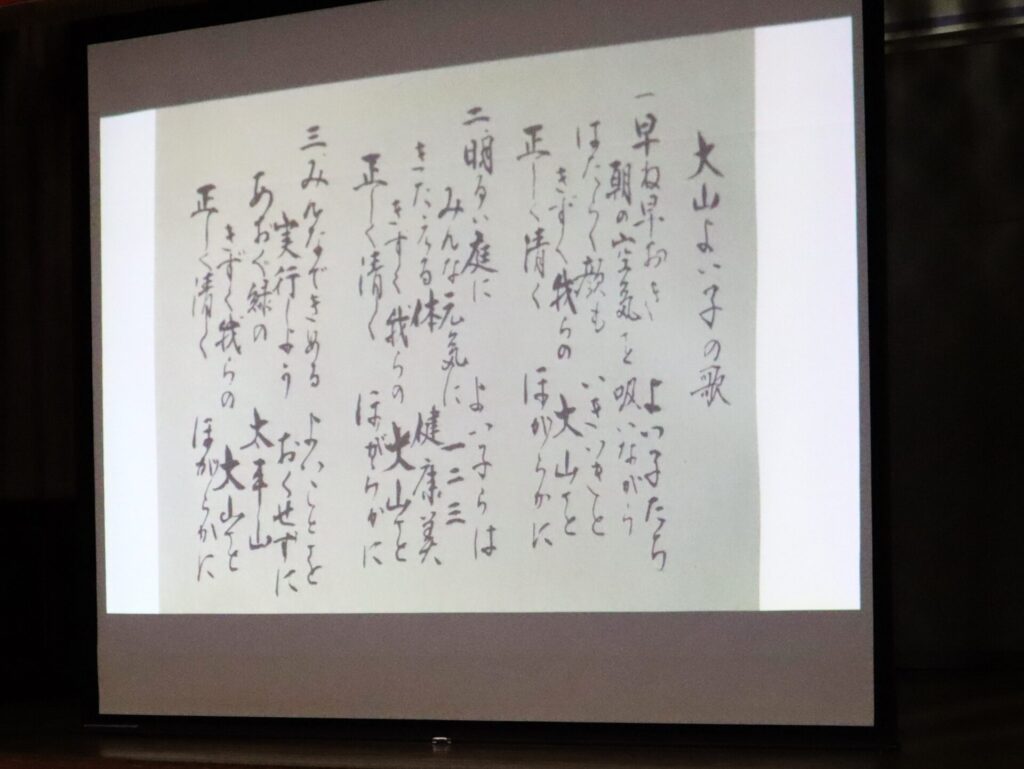 大山よい子の歌
一、早ね早おき よい子たち
朝の空気を 吸いながら
はたらく顔も いきいきと
きずく我らの 大山を
正しく清く ほがらかに
二、明るい庭に よい子らは
みんな元気に 一二三
きたえる体 健康美
きずく我らの 大山を
正しく清く ほがらかに
三、みんなできめる よいことを
実行しよう おくせずに
あおぐ緑の 太平山
きずく我らの 大山を
正しく清く ほがらかに